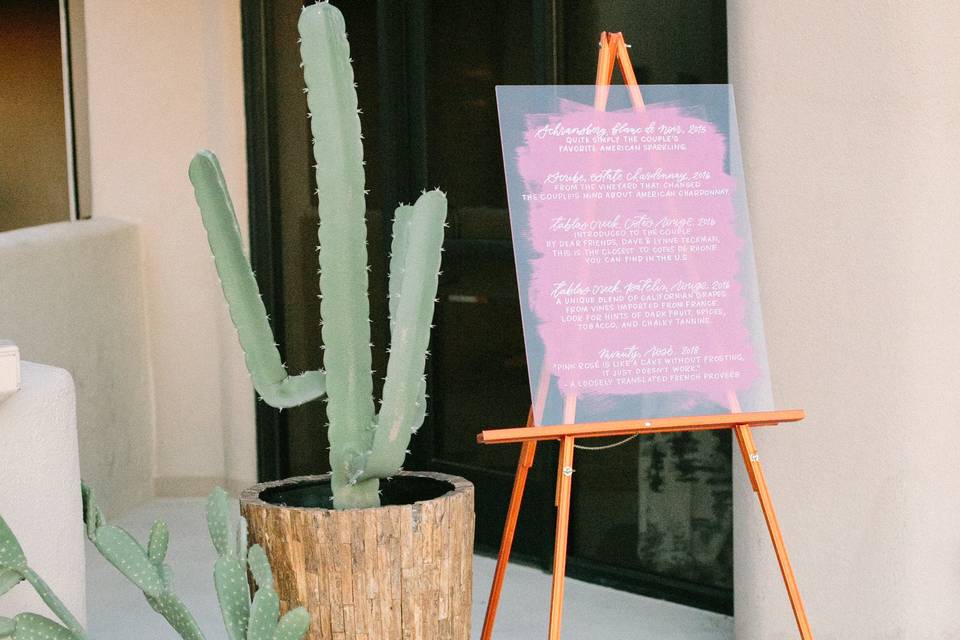 Schramsberg, blanc de noir, 2015
QUITE SIMPLY THE COUPLE'S
FAVORITE AMERICAN SPARKLING.
Scribe, Estate Chardonnay, 2016
FROM THE VINEYARD THAT CHANGED
THE COUPLE'S MIND ABOUT AMERICAN CHARDONNAY.
tablas creek, Cotes Rouge, 2016
INTRODUCED TO THE COUPLE
BY DEAR FRIENDS, DAVE & LYNNE TECKMAN,
THIS IS THE CLOSEST TO COTES DE RHONE
YOU CAN FIND IN THE U.S.
tablas creek, Patelin Rouge, 2016
A UNIQUE BLEND OF CALIFORNIAN GRAPES
FROM VINES IMPORTED FROM FRANCE.
LOOK FOR HINTS OF DARK FRUIT, SPICES,
TOBACCO, AND CHALKY TANNINS.
Rosé, 2018
"PINK ROSÉ IS LIKE A CAKE WITHOUT FROSTING,
IT JUST DOESN'T WORK."
- A LOOSELY TRANSLATED FRENCH PROVERB